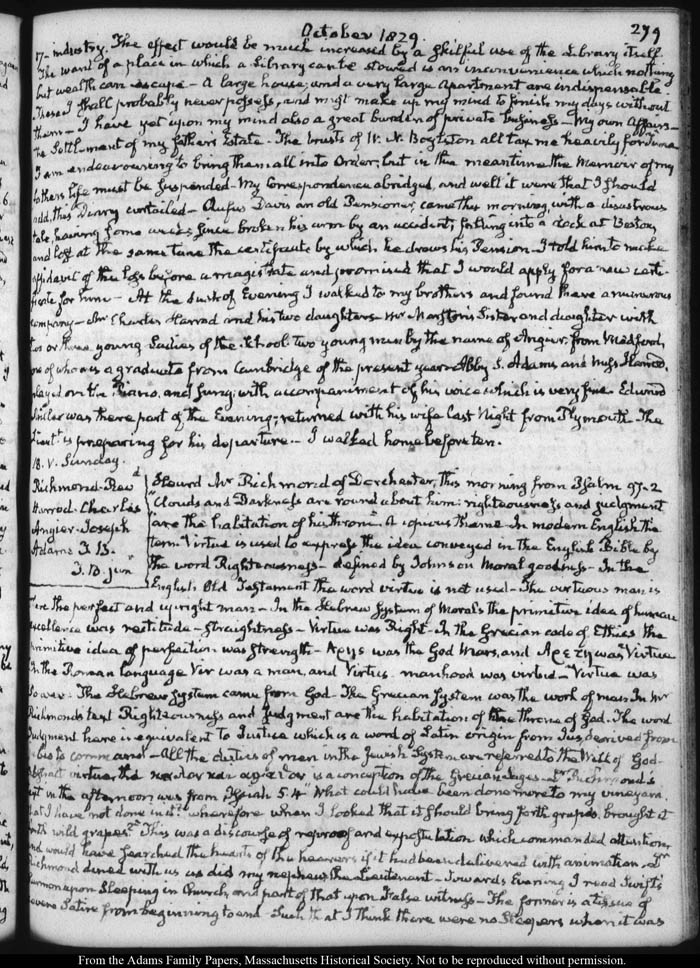 October 1829.
279
17- industry. The effect would be much increased by a skilful use of the Library itself.
The want of a place in which a Library can be stowed is an inconvenience which nothing
but wealth can escape - A large house, and a very large apartment are indispensable
These I shall probably never possess, and must make up my mind to finish my days without
them - I have yet upon my mind also a great burden of private business - My own Affairs -
the Settlement of my fathers Estate - The trusts of W. N. Boylston all tax me heavily for Time
I am endeavouring to bring them all into Order; but in the meantime the Memoir of my
fathers life must be suspended - My Correspondence abridged, and well it were that I should
add, this Diary curtailed - Rufus Davis an old Pensioner, came this morning, with a disastrous
tale, having some weeks since broken his arm by an accident, falling into a dock at Boston,
and lost at the same time the certificate by which he draws his Pension. I told him to make
affidavit of the loss before a magistrate and promised that I would apply for a new certi-
ficate for him - At the dusk of Evening I walked to my brothers and found there a numerous
company - Mr Charles Harrod and his two daughters - Mr Marston's Sister and daughter with
two or three young Ladies of the School two young men by the name of Angier from Medford,
one of whom is a graduate from Cambridge of the present year - Abby S. Adams and Miss Harrod,
played on the Piano, and sung, with accompaniment of his voice which is very fine. Edward
Miller was there part of the Evening; returned with his wife last Night from Plymouth - The
Lieutt. is preparing for his departure. - I walked home before ten.
18. V. Sunday.
Richmond - Revd
Harrod - Charles
Angier - Joseph
Adams T. B.
T. B. junr
Heard Mr Richmond of Dorchester, this morning from Psalm 97. 2
"Clouds and Darkness are round about him: righteousness and judgment
"are the habitation of his throne" A copious theme. In modern English the
term Virtue is used to express the idea conveyed in the English Bible by
the word Righteousness - defined by Johnson Moral goodness - In the
English Old Testament the word virtue is not used - The virtuous man is
there the perfect and upright man - In the Hebrew System of Morals the primitive idea of human
excellence was rectitude - straightness - Virtue was Right - In the Grecian code of Ethics the
primitive idea of perfection was strength - Αρης was the God Mars, and Αρετη was Virtue
In the Roman language Vir was a man, and Virtus manhood was virtue - Virtue was
Power. The Hebrew System came from God - The Grecian System was the work of man. In Mr
Richmond's text Righteousness and Judgment are the habitation of the throne of God. The word
Judgment here is equivalent to Justice which is a word of Latin origin from Jus, derived from
Jubeo to command - All the duties of man in the Jewish System are referred to the Will of God -
Abstract virtue, the is a conception of the Grecian Sages - Mr Richmond's
text in the afternoon was from Isaiah 5. 4 What could have been done more to my vineyard,
that I have not done in it? wherefore when I looked that it should bring forth grapes, brought it
forth wild grapes? This was a discourse of reproof and expostulation which commanded attention,
and would have searched the hearts of the hearers if it had been delivered with animation. Mr
Richmond dined with us as did my nephew the Lieutenant - Towards Evening I read Swift's
Sermon upon Sleeping in Church, and part of that upon False witness - The former is a tissue of
severe Satire from beginning to end - Such that I think there were no Sleepers when it was
From the Adams Family Papers, Massachusetts Historical Society. Not to be reproduced without permission.